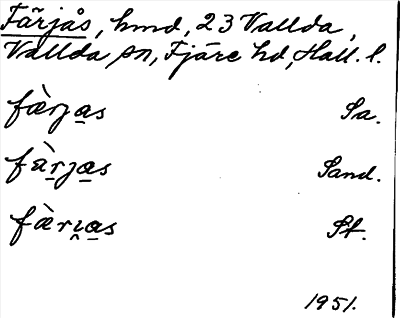 Färjås, hmd, 23 Vallda,
Vallda sn, Fjäre hd, Hall. l.
fæ̀rja̲s Sa.
fæ̀r̲ja̲s Sand.
fæ̀rı̯a̲s St.
1951.